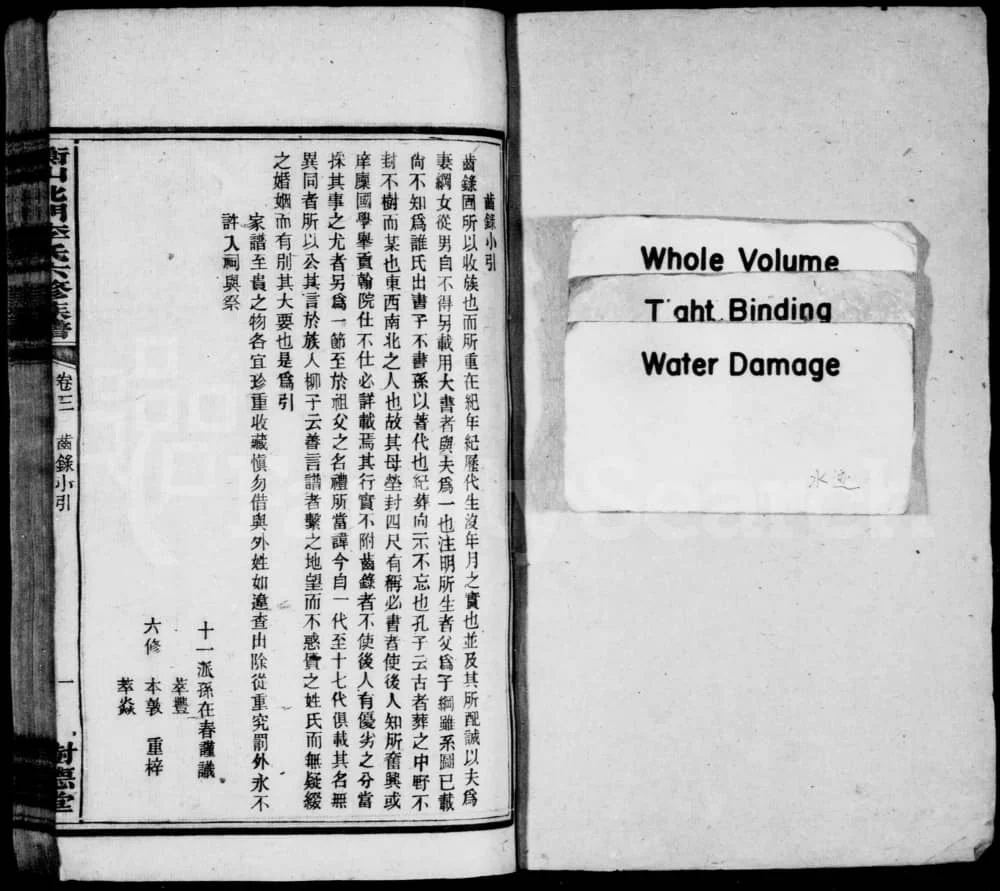 齒錄小引
齒錄圖所以收族也而所重在紀年紀歷代生沒年月之實也並及其所配誠以夫爲
妻綱女從男自不得另載用大書者與夫爲一也注明所生者父爲子綱雖系圖已載
尙不知爲誰氏出書子不書孫以著代也紀葬向示不忘也孔子云古者葬之中野不
封不樹而某也東西南北之人也故其母塋封四尺有稱必書者使後人知所奮興或
庠廩國學舉貢翰院仕不仕必詳載焉其行實不附齒錄者不使後人有優劣之分當
採其事之尤者另爲一節至於祖父之名禮所當諱今自一代至十七代俱載其名無
異同者所以公其言於族人柳子云善言譜者繫之地望而不惑質之姓氏而無疑綴
之婚姻而有別其大要也是爲引
家譜至貴之物各宜珍重收藏愼勿借與外姓如違查出除從重究罰外永不
許入祠與祭
十一派孫在春謹識
萃豐
六修 本敦 重梓
萃焱
衡山北門李氏六修族譜 卷三 齒錄小引 一 樹德堂
Whole Volume
Tight Binding
Water Damage
水
FamilySearch